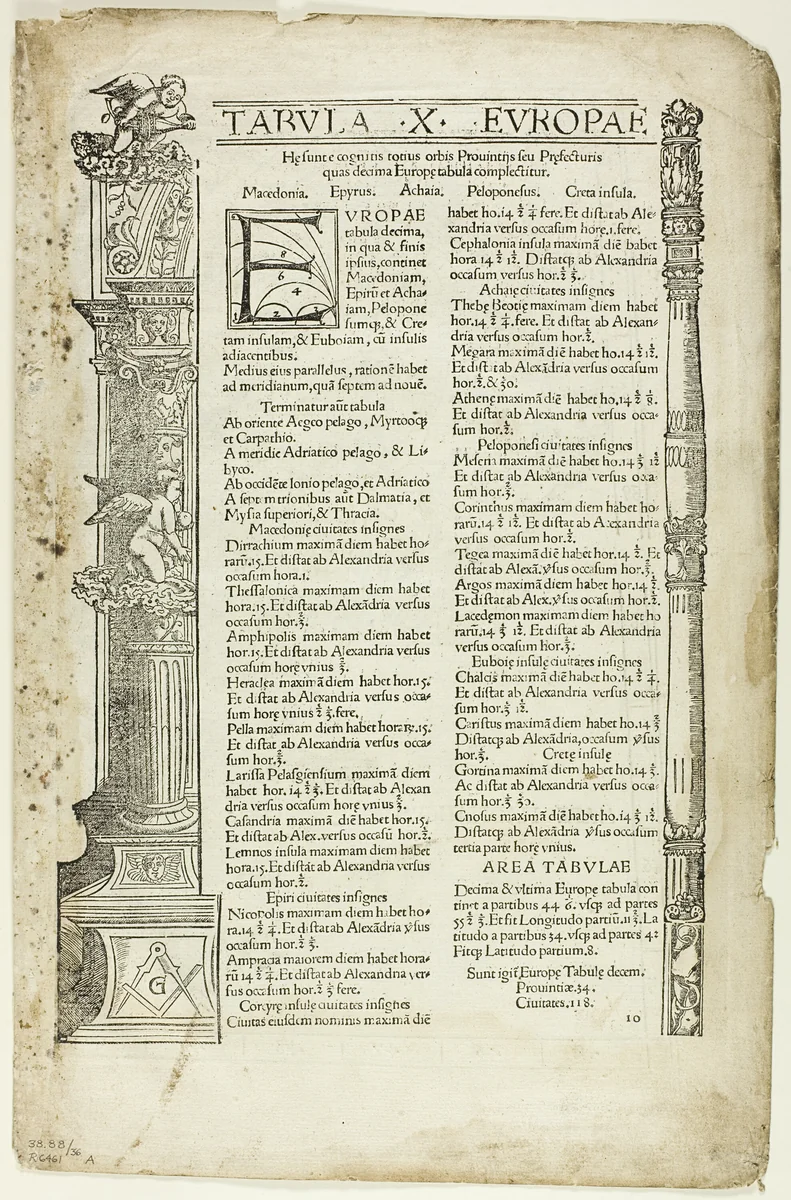 TABVLA ·X· EVROPAE
Hę sunt e cognitis totius orbis Prouintijs seu Pręfecturis
quas decima Europę tabula complectitur.
Macedonia. Epyrus. Achaia. Peloponesus. Creta insula.
EVROPAE
tabula decima,
in qua & finis
ipsius, continet
Macedoniam,
Epirū et Acha-
iam, Pelopone
sumq;, & Cre-
8
6
4
2
tam insulam, & Euboiam, cū insulis
adiacentibus.
Medius eius parallelus, rationē habet
ad meridianum, quā septem ad nouē.
Terminatur aūt tabula
Ab oriente Aegeo pelago, Myrtooq;
et Carpathio.
A meridie Adriatico pelago, & Li-
byco.
Ab occidēte Ionio pelago, et Adriatico
A septemtrionibus aūt Dalmatia, et
Mysia superiori, & Thracia.
Macedonię ciuitates insignes
Dirrachium maximā diem habet ho-
rarū.15. Et distat ab Alexandria versus
occasum hora.1.
Thessalonica maximam diem habet
hora.15. Et distat ab Alexādria versus
occasum hor.⅔.
Amphipolis maximam diem habet
hor.15. Et distat ab Alexandria versus
occasum horę vnius ⅔.
Heraclea maximā diem habet hor.15.
Et distat ab Alexandria versus occa-
sum horę vnius ½ ⅓. fere.
Pella maximam diem habet horarū.15.
Et distat ab Alexandria versus occa-
sum hor.⅔.
Larissa Pelasgiensium maximā diem
habet hor. 14 ½ ⅓. Et distat ab Alexan
dria versus occasum horę vnius ⅔.
Casandria maximā diē habet hor.15.
Et distat ab Alex. versus occasū hor.½.
Lemnos insula maximam diem habet
hora.15. Et distat ab Alexandria versus
occasum hor.½.
Epiri ciuitates insignes
Nicopolis maximam diem habet ho-
ra.14 ½ ¼. Et distat ab Alexādria ꝟsus
occasum hor.½ ⅓.
Ampracia maiorem diem habet hora-
rū 14 ½ ¼. Et distat ab Alexandria ver-
sus occasum hor.½ ⅓ fere.
Corcyrę insulę ciuitates insignes
Ciuitas eiusdem nominis maximā diē
habet ho.14 ½ ¼ fere. Et distat ab Ale-
xandria versus occasum horę.1. fere.
Cephalonia insula maximā diē habet
hora 14 ½ 12. Distatq; ab Alexandria
occasum versus hor.½ ⅓.
Achaię ciuitates insignes
Thebę Beotię maximam diem habet
hor.14 ½ ¼. fere. Et distat ab Alexan-
dria versus occasum hor.½.
Megara maximā diē habet ho.14 ½ 12.
Et distat ab Alexādria versus occasum
hor.½. & 30.
Athenę maximā diē habet ho.14 ½ ⅛.
Et distat ab Alexandria versus occa-
sum hor.½.
Peloponesi ciuitates insignes
Mesena maximā diē habet ho.14 ⅓ 12
Et distat ab Alexandria versus occa-
sum hor.⅔.
Corinthus maximam diem habet ho-
rarū.14 ½ 12. Et distat ab Alexandria
versus occasum hor.½.
Tegea maximā diē habet hor.14 ½. Et
distat ab Alexā. ꝟsus occasum hor.⅔.
Argos maximam diem habet hor.14 ½.
Et distat ab Alex. ꝟsus occasum hor.½.
Lacedemon maximam diem habet ho
rarū.14 ⅓ 12. Et distat ab Alexandria
versus occasum hor.⅔.
Euboię insulę ciuitates insignes
Chalcis maximā diem habet ho.14 ½ ¼.
Et distat ab Alexandria versus occa-
sum hor.⅓ 12.
Caristus maximā diem habet ho.14 ⅔
Distatq; ab Alexādria, occasum ꝟsus
hor.⅓. Cretę insulę
Gortina maximā diem habet ho.14 ⅓.
Ac distat ab Alexandria versus occa-
sum hor.⅓ 30.
Cnosus maximā diē habet ho.14 ⅓ 12.
Distatq; ab Alexādria ꝟsus occasum
tertia parte horę vnius.
AREA TABVLAE
Decima & vltima Europę tabula con
tinet a partibus 44 6. vsq; ad partes
55 ½ ⅓. Et fit Longitudo partiū.11 ⅔. La
titudo a partibus 34. vsq; ad partes 42
Fitq; Latitudo partium.8.
Sunt igit̄ Europę Tabulę decem.
Prouintiæ.34.
Ciuitates.118.
10
G
38.88/36 A
R6461